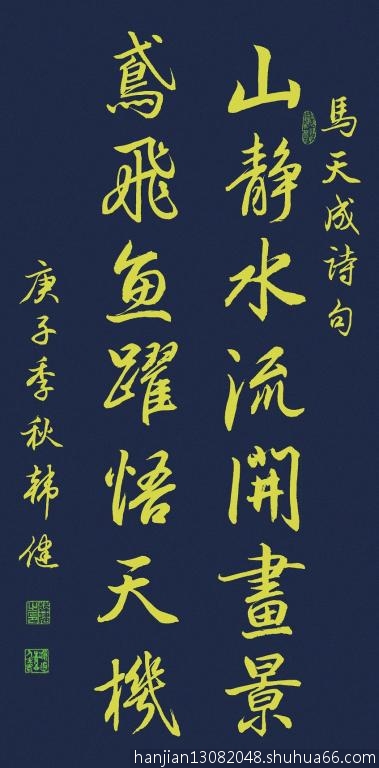 馬天成诗句
山静水流開畫景
鳶飛魚躍悟天機
庚子季秋韩健
hanjian13082048.shuhua66.com